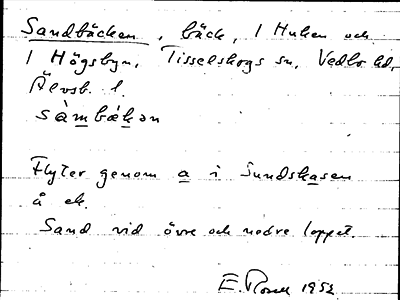 Sandbäcken, bäck, i Huken och
i Högsbyn, Tisselskogs sn, Vedbo hd,
Älvsb. l.
sàmbákən
Flyter genom a i Sundskasen
å ek.
Sand vid övre och nedre loppet.
E. 1952